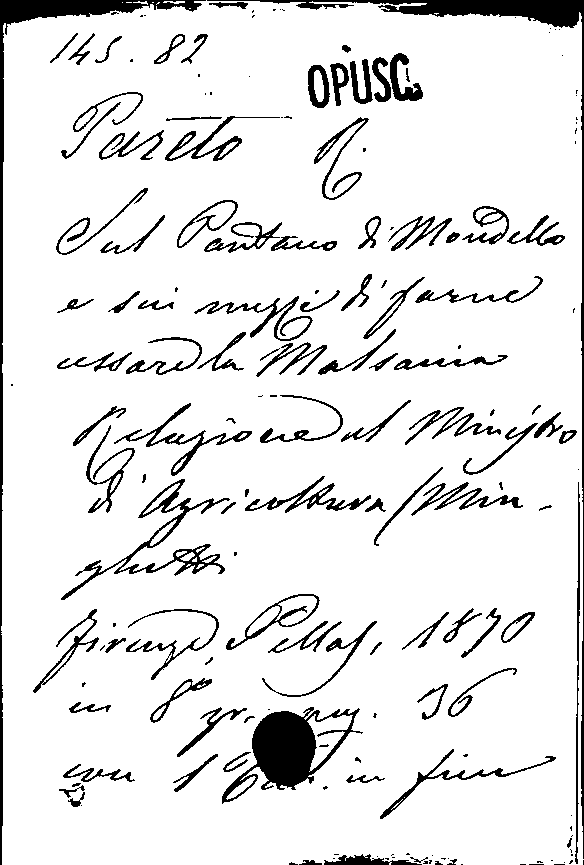 145.82
OPUSC.
Pareto R.
Sul Pantano di Mondello
e sui mezzi di farne
cessare la Malsania
Relazione al Ministro
di Agricoltura (Min-
ghetti
Firenze, Pellas, 1870
in 8° gr. pag. 36
con 1 Tav. in fine